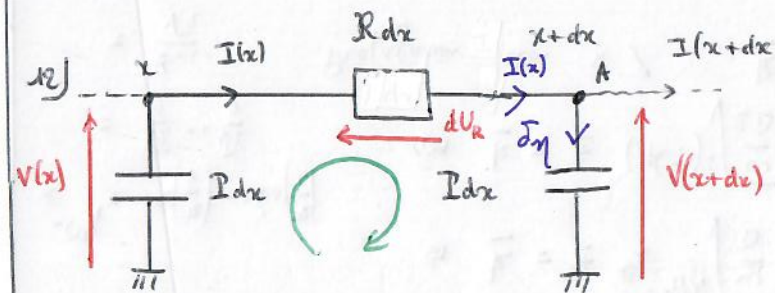 R dx
12) x I(x) x+dx I(x+dx
I(x) A
dU_R δη
V(x) Γdx Γdx V(x+dx)